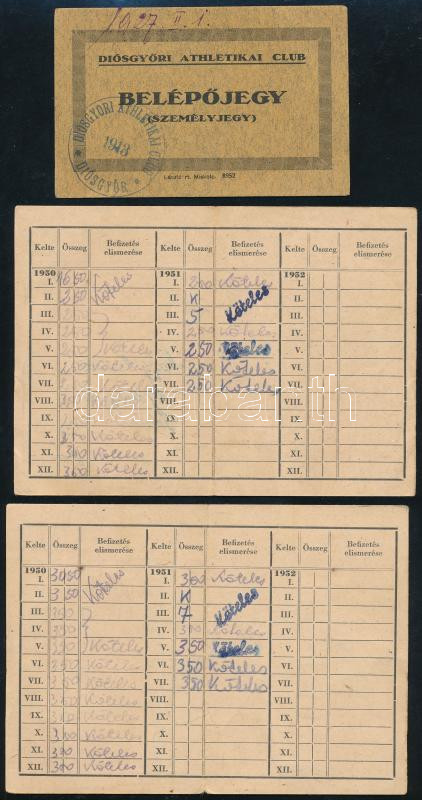 1927 II. 1.
DIÓSGYŐRI ATHLETIKAI CLUB
BELÉPŐJEGY
(SZEMÉLYJEGY)
DIÓSGYŐRI ATHLETIKAI CLUB
1913
* DIÓSGYŐR *
László rt. Miskolc. 8952
Kelte Összeg Befizetés elismerése Kelte Összeg Befizetés elismerése Kelte Összeg Befizetés elismerése
1950 1951 1952
I. I. 200 Köteles I.
II. 250 Köteles II. K II.
III. III. 5 Köteles III.
IV. IV. Köteles IV.
V. Köteles V. 250 Köteles V.
VI. Köteles VI. 250 Köteles VI.
VII. Köteles VII. 250 Köteles VII.
VIII. VIII. VIII.
IX. IX. IX.
X. 300 Köteles X. X.
XI. 300 Köteles XI. XI.
XII. 300 Köteles XII. XII.
darabanth
Kelte Összeg Befizetés elismerése Kelte Összeg Befizetés elismerése Kelte Összeg Befizetés elismerése
1950 1951 1952
I. I. 300 Köteles I.
II. 350 Köteles II. K II.
III. III. 7 Köteles III.
IV. IV. Köteles IV.
V. Köteles V. 350 Köteles V.
VI. Köteles VI. 350 Köteles VI.
VII. Köteles VII. 350 Köteles VII.
VIII. Köteles VIII. VIII.
IX. Köteles IX. IX.
X. 300 Köteles X. X.
XI. 300 Köteles XI. XI.
XII. 300 Köteles XII. XII.